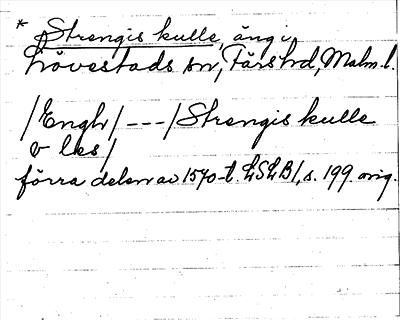 * Strengis kulle, äng i
Lövestads sn, Färs hd, Malm. l.
/Engh/ --- /Strengis kulle
v les/
förra delen av 1570-t. LSLB1, s. 199. orig.